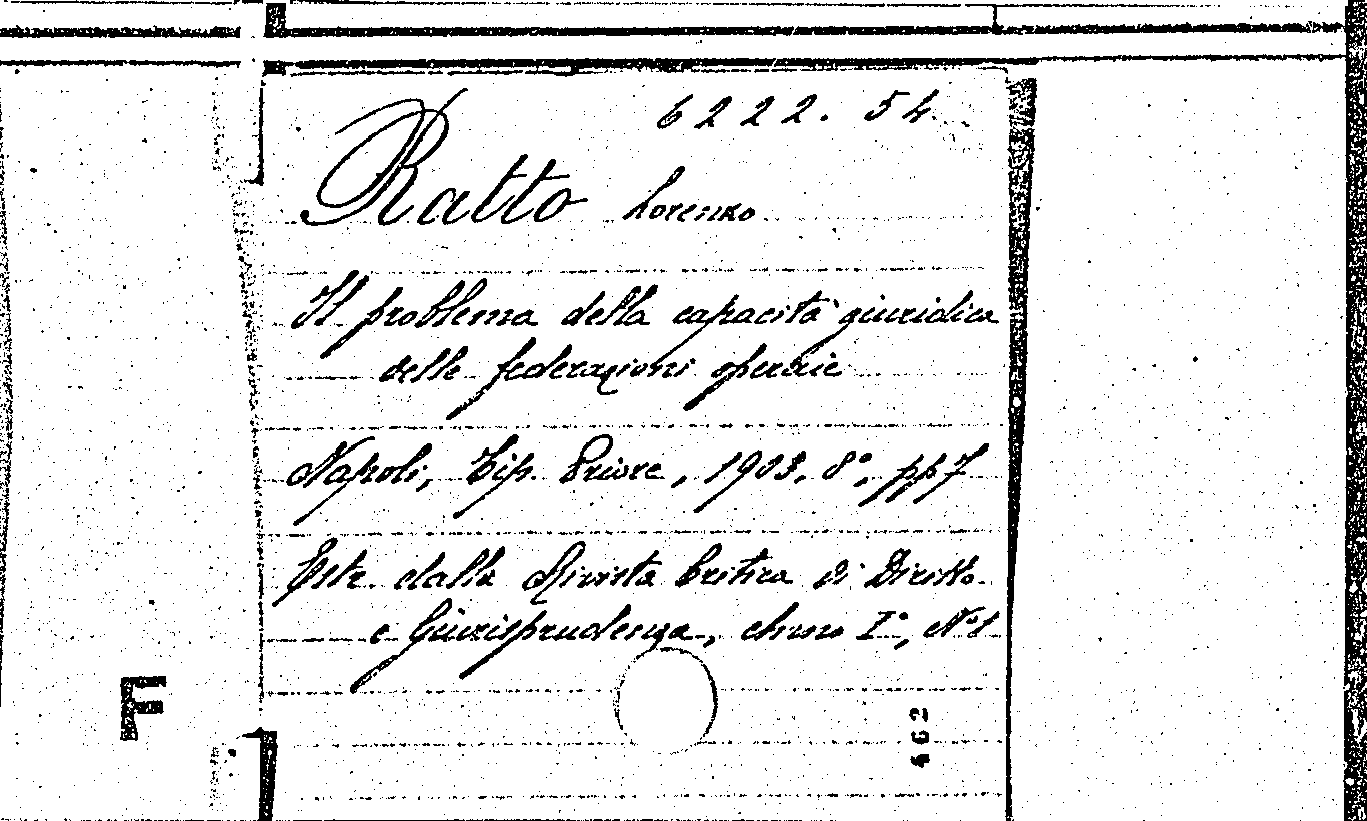 6222.54
Ratto Lorenzo
Il problema della capacità giuridica
delle federazioni operaie
Napoli, Tip. Priore, 1903, 8°, pp 7
Estr. dalla Rivista Critica di Diritto
e Giurisprudenza, Anno I°, N° 1
F
462